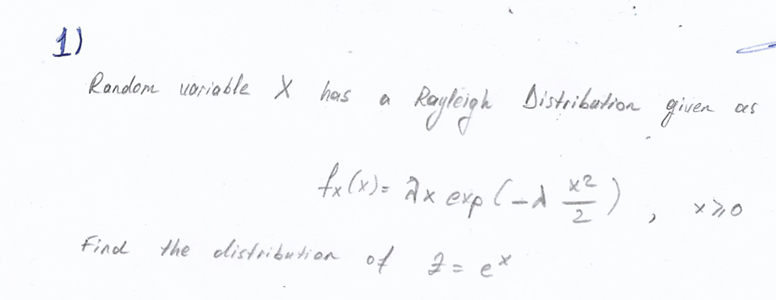 1)
Random variable X has a Rayleigh Distribution given as
fx(x)= λx exp(-λ x²/2) , x≥0
Find the distribution of Z = eˣ